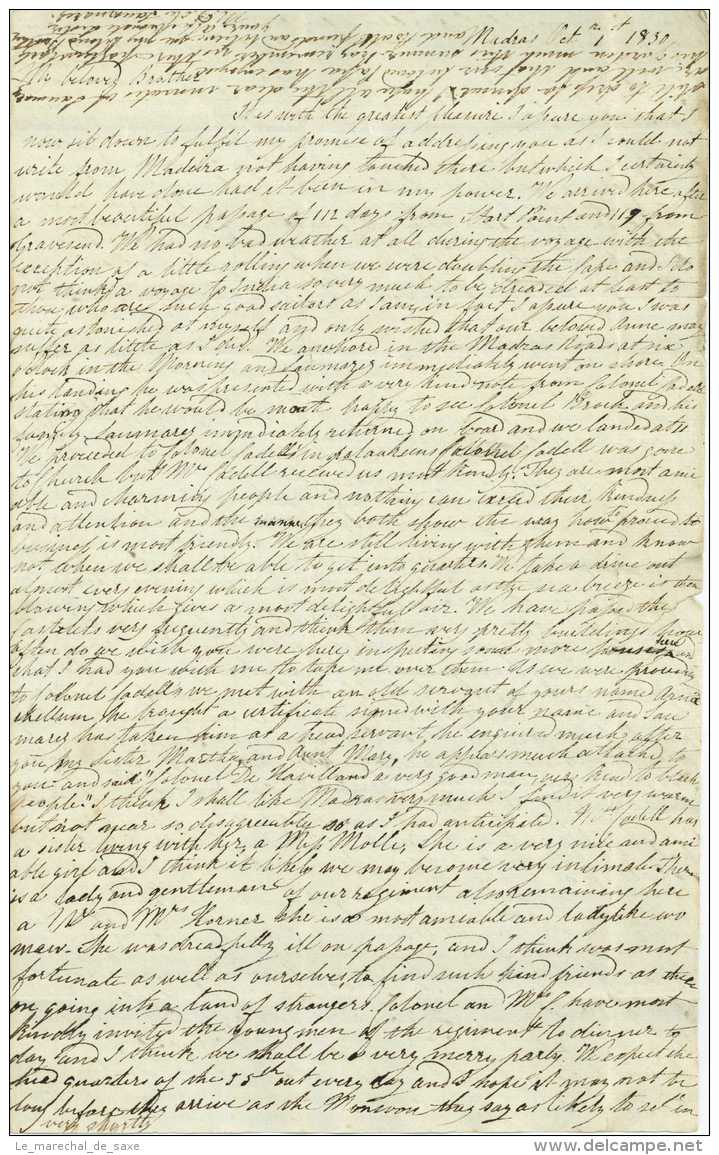 Madras Oct.r 1st 1830
My beloved Brother
It is with the greatest pleasure I assure you that I
now sit down to fulfil my promise of addressing you as I could not
write from Madeira not having touched there but which I certainly
would have done had it been in my power. We arrived here after
a most beautiful passage of 112 days from Start Point and 119 from
Gravesend. We had no bad weather at all during the voyage with the
exception of a little rolling when we were doubling the Cape and I do
not think a voyage to India so very much to be dreaded at least to
those who are such good sailors as I am, in fact I assure you I was
quite astonished at myself and only wished that our beloved Anne may
suffer as little as I did. We anchored in the Madras Roads at six
o'clock in the Morning and Saumarez immediately went on shore. On
his landing he was presented with a very kind note from Colonel Cadell
stating that he would be most happy to see Colonel Brock and his
family. Saumarez immediately returned on board and we landed at
We proceeded to Colonel Cadells in palankeens Colonel Cadell was gone
to Church but Mrs Cadell received us most kindly. They are most ami
able and charming people and nothing can exceed their kindness
and attention and the manner they both show the way how to proceed to
business is most friendly. We are still living with them and know
not when we shall be able to get into quarters. We take a drive out
almost every evening which is most delightful as the sea breeze is then
blowing which gives a most delightful air. We have passed the
very frequently and think them very pretty buildings how
often do we wish you were here inspecting some more
that I had you with me to take me over them. As we were proceeding
to Colonel Cadells we met with an old servant of yours named
he brought a certificate signed with your name and Sau
marez has taken him as a head servant, he enquired much after
you, my Sister Martha, and Aunt Mary, he appears much attached to
you and said "Colonel De Havilland a very good man, very kind to black
people." I think I shall like Madras very much. I find it very warm
but not near so disagreeably so as I had anticipated. Mrs Cadell has
a sister living with her, a Miss Molle, She is a very nice and ami
able girl and I think it likely we may become very intimate. There
is a lady and gentleman of our regiment also remaining here
a Mr and Mrs Horner she is a most amiable and ladylike wo
man. She was dreadfully ill on passage, and I think was most
fortunate as well as ourselves, to find such kind friends as these
on going into a land of strangers. Colonel an Mrs C. have most
kindly invited the young men of the regiment to dinner to
day and I think we shall be a very merry party. We expect the
head quarters of the 55th out every day and I hope it may not be
long before they arrive as the Monsoon they say is likely to set in
very shortly
Le_marechal_de_saxe
www.delcampe.net